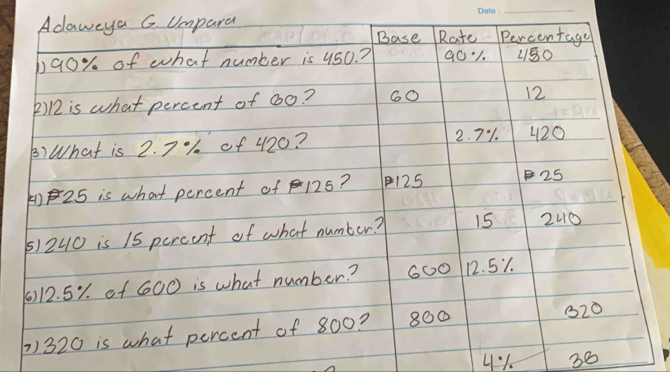 Date:
Adaweya G. Umpara
Base Rate Percentage
1) 90% of what number is 450.? 90% 450
2) 12 is what percent of 60? 60 12
3) What is 2.7% of 420? 2.7% 420
4) ₱25 is what percent of ₱125? ₱125 ₱25
5) 240 is 15 percent of what number.? 15 240
6) 12.5% of 600 is what number.? 600 12.5%
7) 320 is what percent of 800? 800 320
4% 38